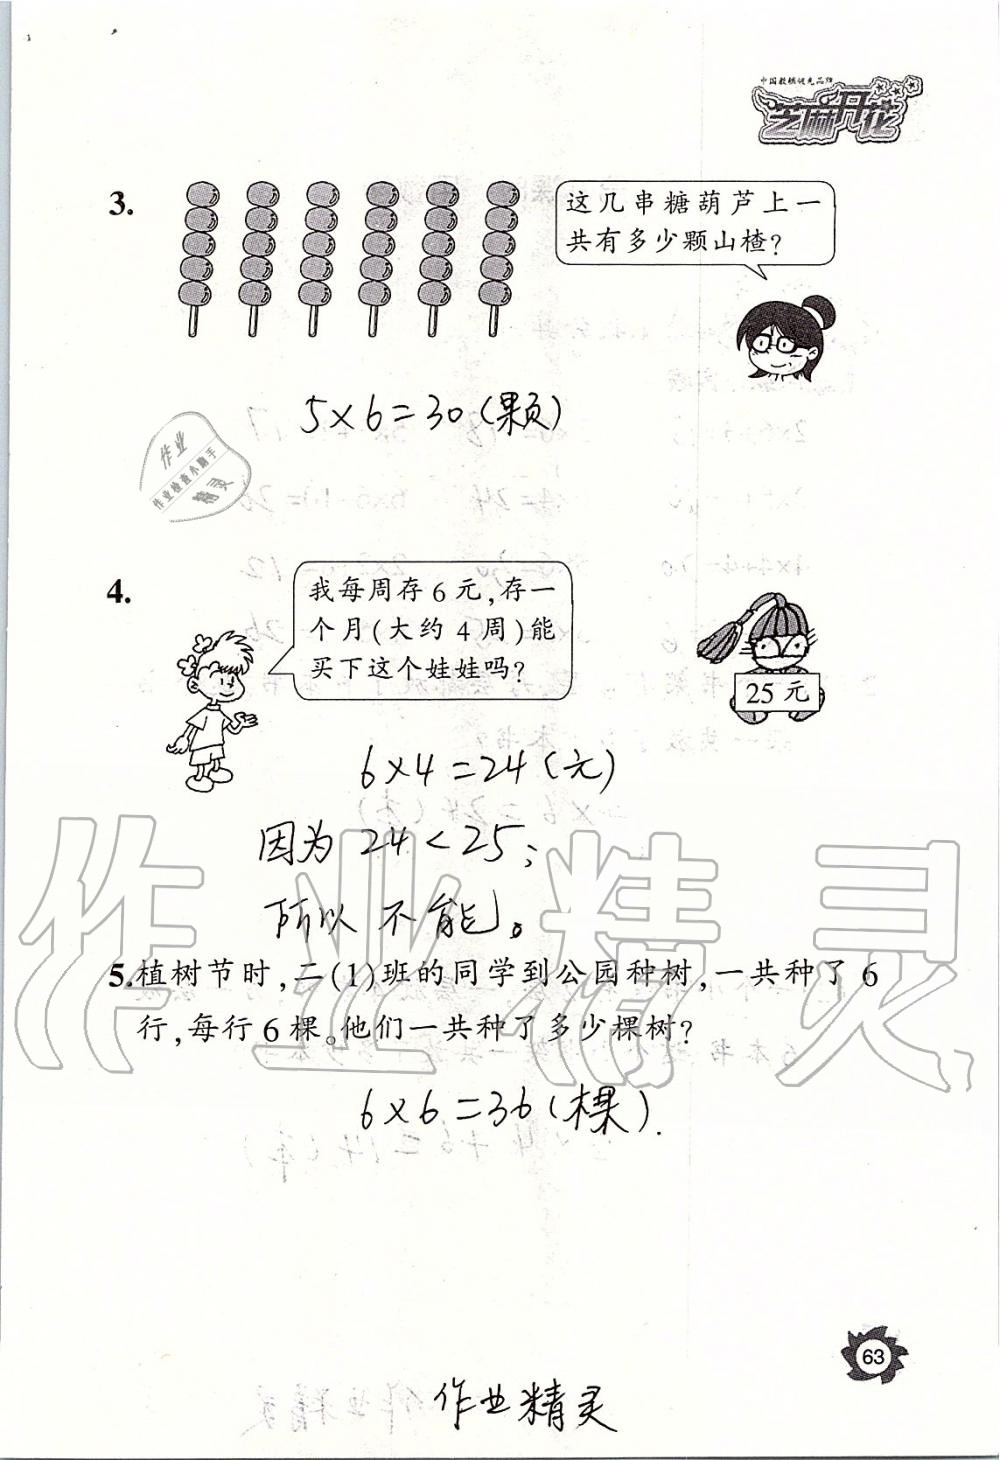 中国教辅领先品牌
芝麻开花
3.
这几串糖葫芦上一
共有多少颗山楂?
5×6=30(颗)
作业
作业检查小助手
精灵
4.
我每周存6元,存一
个月(大约4周)能
买下这个娃娃吗?
25元
6×4=24(元)
因为 24<25;
所以 不能。
作业精灵
5.植树节时,二(1)班的同学到公园种树,一共种了6
行,每行6棵。他们一共种了多少棵树?
6×6=36(棵).
63
作业精灵